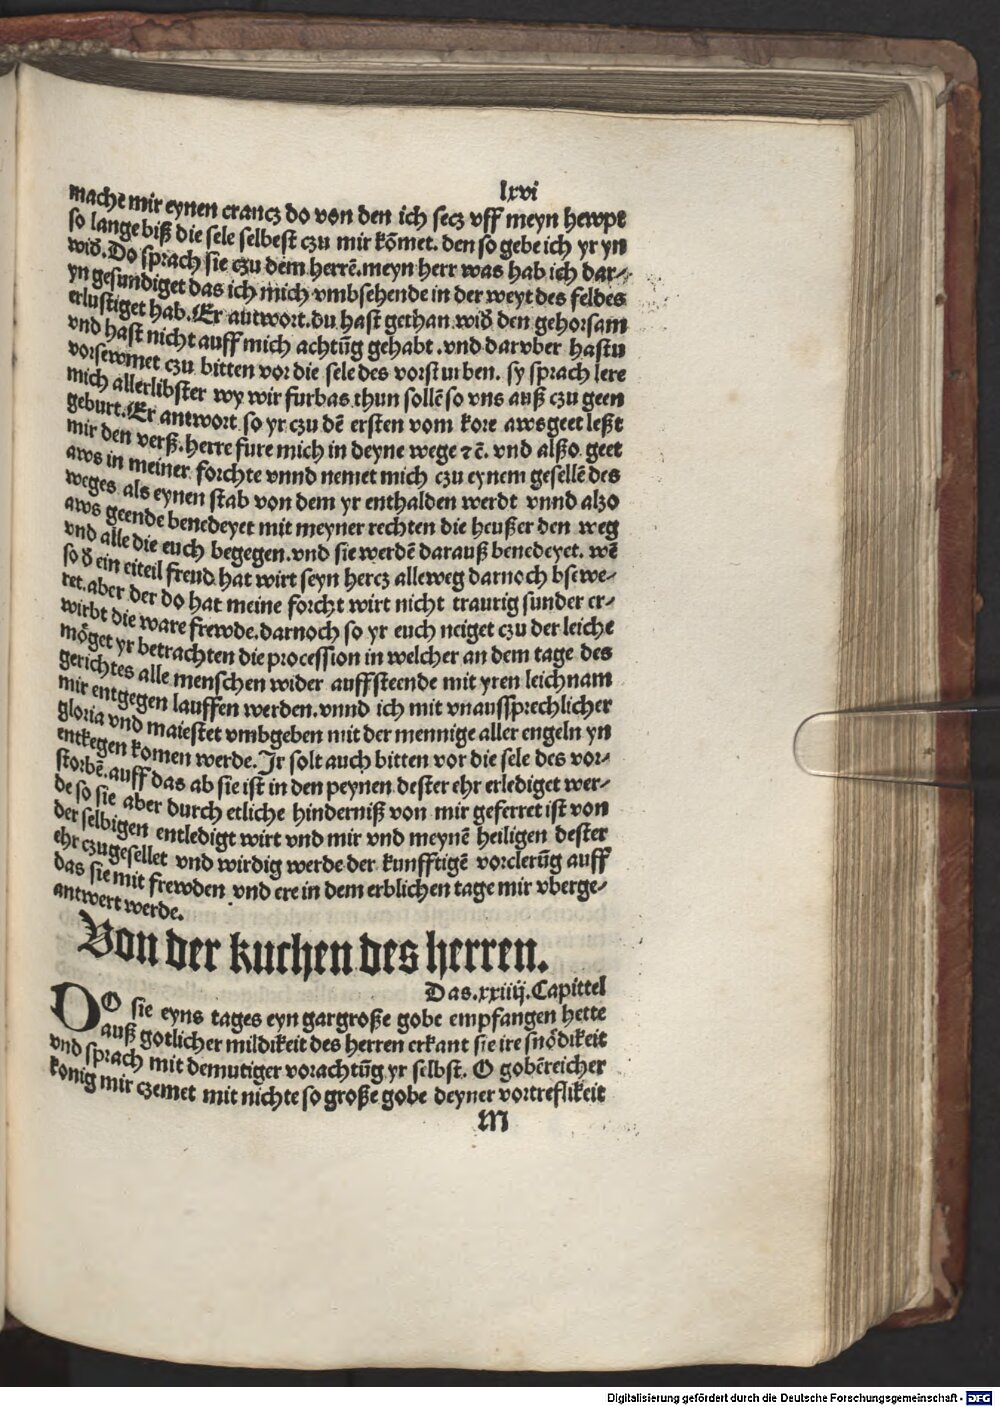 lxvi
mache mir eynen crancz do von den ich secz vff meyn hewpt
so lange biß die sele selbest czu mir kōmet. den so gebe ich yr yn
wid̄. Do sprach sie czu dem herrē. meyn herr was hab ich dar⸗
yn gesundiget das ich mich vmbsehende in der weyt des feldes
erlustiget hab. Er antwort. du hast gethan wid̄ den gehorsam
vnd hast nicht auff mich achtūg gehabt . vnd darvber hastu
vorsewmet czu bitten vor die sele des vorsturben. sy sprach lere
mich allerlibster wy wir furbas thun sollē so vns auß czu geen
geburt. Er antwort so yr czu dē ersten vom kore awsgeet leßt
mir den verß. herre fure mich in deyne wege ⁊ c̄. vnd alßo geet
aws in meiner forchte vnnd nemet mich czu eynem gesellē des
weges als eynen stab von dem yr enthalden werdt vnnd alzo
aws geende benedeyet mit meyner rechten die heußer den weg
vnd alle die euch begegen. vnd sie werdē darauß benedeyet. wē
so d̄ ein eiteil freud hat wirt seyn hercz alleweg darnoch bſwe⸗
ret. aber der do hat meine forcht wirt nicht traurig sunder er⸗
wirbt die ware frewde. darnoch so yr euch neiget czu der leiche
möget yr betrachten die procession in welcher an dem tage des
gerichtes alle menschen wider auffsteende mit yren leichnam
mir entgegen lauffen werden. vnnd ich mit vnaussprechlicher
gloria vnd maiestet vmbgeben mit der mennige aller engeln yn
entkegen komen werde. Ir solt auch bitten vor die sele des vor⸗
storbē. auff das ab sie ist in den peynen dester ehr erlediget wer⸗
de so sie aber durch etliche hinderniß von mir geferret ist von
der selbigen entledigt wirt vnd mir vnd meynē heiligen dester
ehr czugesellet vnd wirdig werde der kunfftigē vorclerūg auff
das sie mit frewden vnd ere in dem erblichen tage mir vberge⸗
antwert werde.
Von der kuchen des herren.
Das .xxiiij. Capittel
DO sie eyns tages eyn gargroße gobe empfangen hette
auß gotlicher mildikeit des herren erkant sie ire snödikeit
vnd sprach mit demutiger vorachtūg yr selbst. O gobēreicher
konig mir czemet mit nichte so große gobe deyner vortreflikeit
M
Digitalisierung gefördert durch die Deutsche Forschungsgemeinschaft - DFG